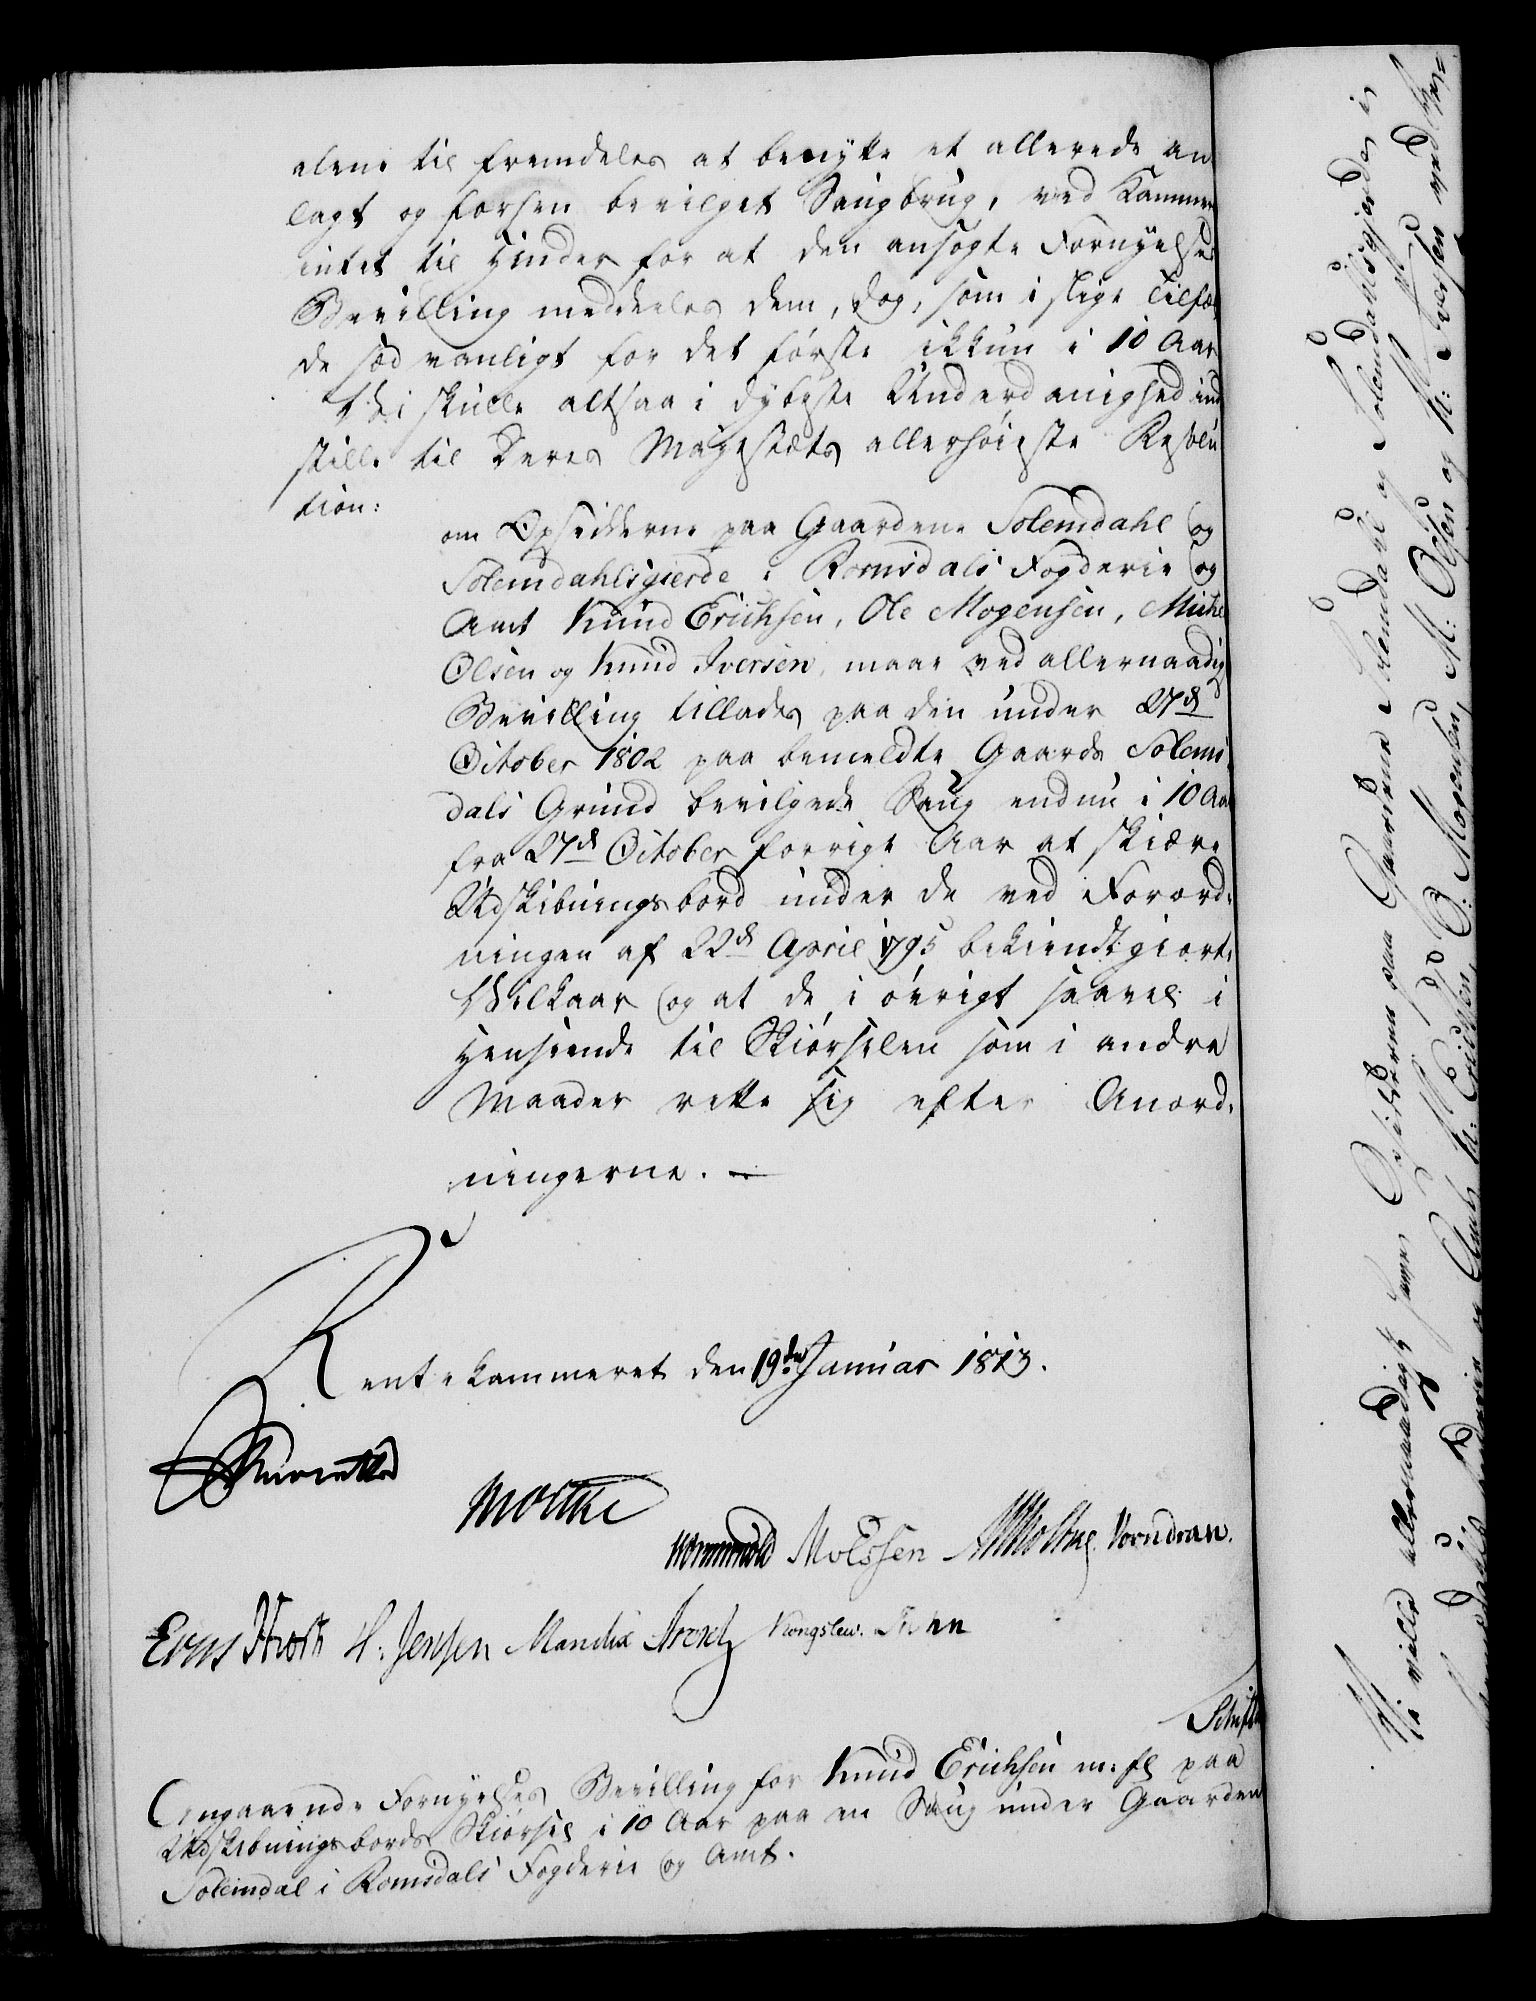 alene til fremdeles at benytte et allerede an
lagt og forhen bevilget Saugbrug, ved Kammer
intet til Hinder for at den ansøgte Fornyelses
Bevilling meddeeles dem, dog, som i slige Tilfæl
de sædvanligt for det første ikkun i 10 Aar
Vi skulle altsaa i dybeste Underdanighed ind
stille til Deres Majestæts allerhøieste Resolu
tion:
om Opsidderne paa Gaardene Solemdahl og
Solemdahlsgierde i Romsdals Fogderie og
Amt Knud Erichsen, Ole Mogensen, Michel
Olsen og Knud Iversen, maae ved allernaadigst
Bevilling tillades paa den under 27d
October 1802 paa bemeldte Gaards Solem
dals Grund bevilgede Saug endnu i 10 Aar
fra 27d October forrige Aar at skiære
Udskibningsbord under de ved Forord:
ningen af 22d April 1795 bekiendtgiorte
Vilkaar og at de i øvrigt saavel i
Henseende til Skiørselen som i andre
Maader rette sig efter Anord:
ningerne. —
Rentekammeret den 19de Januar 1813.
Moltke
Wormskiold Molssen Vorndran.
Hroth H: Jensen Mandix Kongslew.
Schiøtt
Angaaende Fornyelses Bevilling for Knud Erichsen m: fl paa
Udskibningsbords Skiørsel i 10 Aar paa en Saug under Gaarden
Solemdal i Romsdals Fogderie og Amt.
Vi ville allernaadigst have Opsidderne paa Gaardene Solemdahl og Solemdahlsgjerde i
Amt K: Erichsen, O: Mogensen, M: Olsen og K: Iversen ved